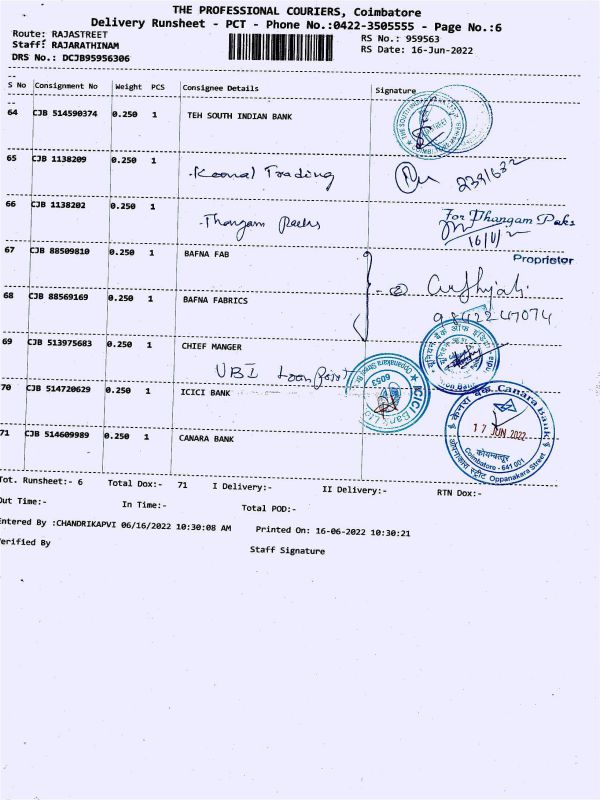 THE PROFESSIONAL COURIERS, Coimbatore
Delivery Runsheet - PCT - Phone No.:0422-3505555 - Page No.:6
Route: RAJASTREET
RS No.: 959563
Staff: RAJARATHINAM
RS Date: 16-Jun-2022
DRS No.: DCJB95956306
S No Consignment No Weight PCS Consignee Details Signature
64 CJB 514590374 0.250 1 TEH SOUTH INDIAN BANK
65 CJB 1138209 0.250 1
Trading
66 CJB 1138202 0.250 1
Thangam
For Thangam Paks
Proprietor
67 CJB 88509810 0.250 1 BAFNA FAB
68 CJB 88569169 0.250 1 BAFNA FABRICS
69 CJB 513975683 0.250 1 CHIEF MANGER
UBI Loan Point
70 CJB 514720629 0.250 1 ICICI BANK
ICICI Bank
6053
71 CJB 514609989 0.250 1 CANARA BANK
केनरा बैंक Canara Bank
17 JUN 2022
कोयम्बत्तूर
Coimbatore - 641 001
Oppanakara Street
Tot. Runsheet:- 6 Total Dox:- 71 I Delivery:- II Delivery:- RTN Dox:-
Out Time:- In Time:- Total POD:-
Entered By :CHANDRIKAPVI 06/16/2022 10:30:08 AM Printed On: 16-06-2022 10:30:21
Verified By
Staff Signature